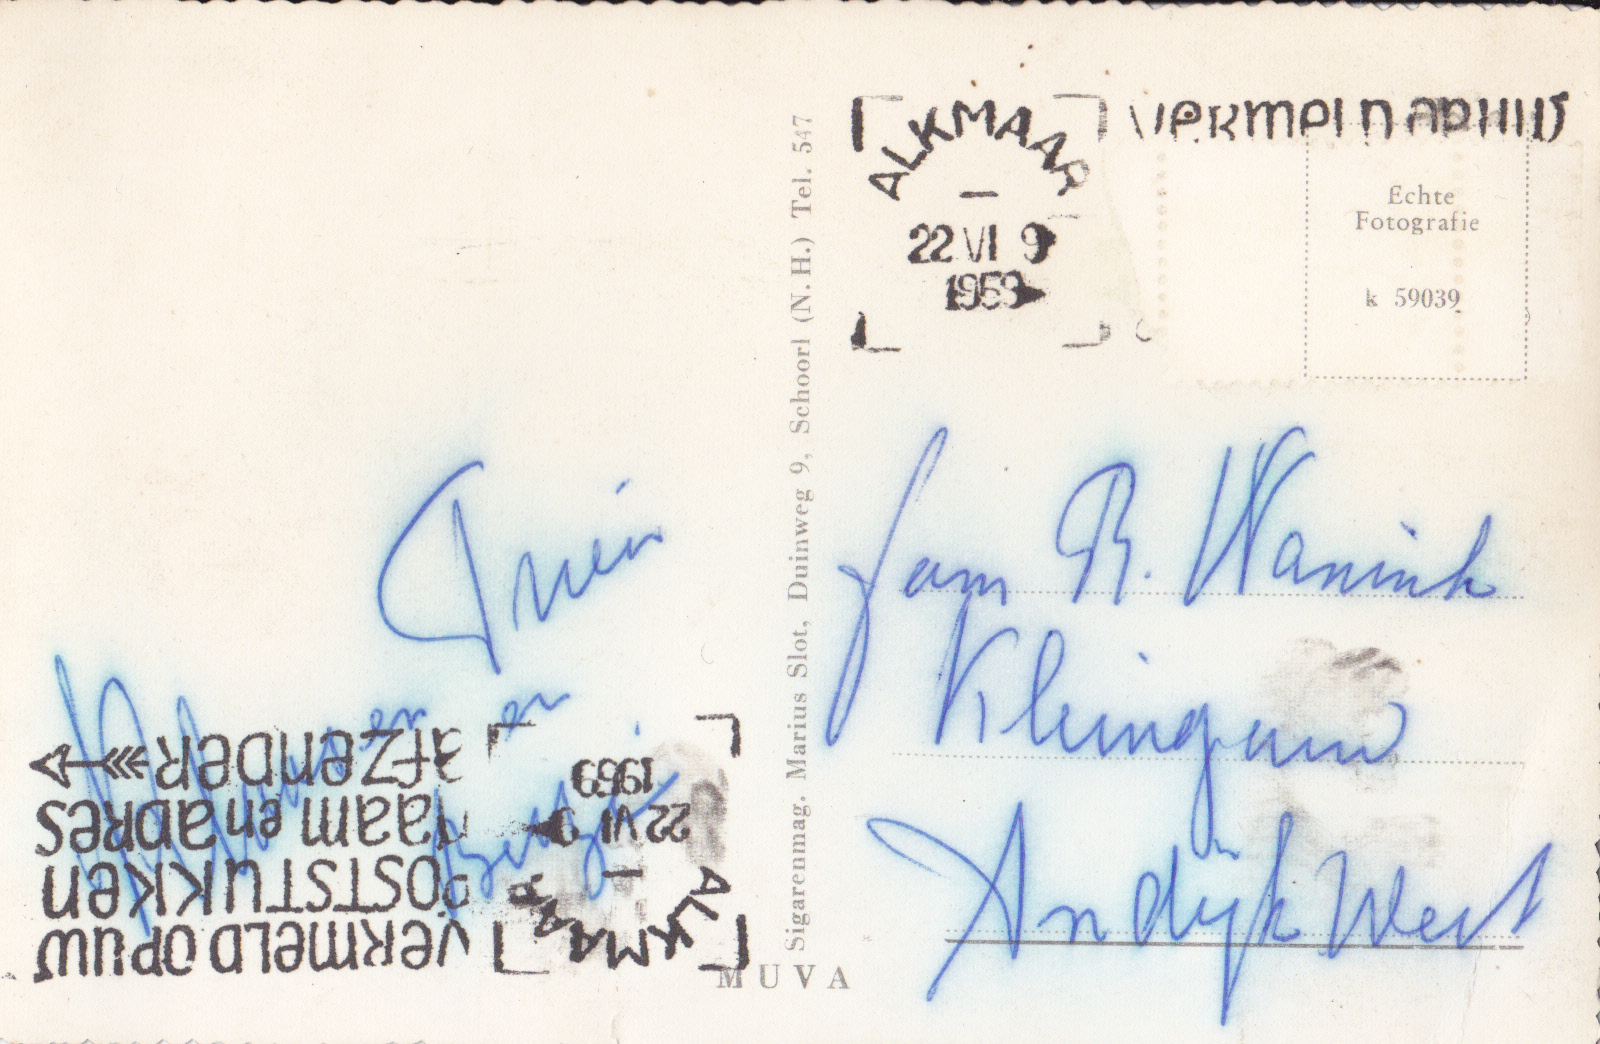 ALKMAAR
22 VI 9
1959
VERMELD OP UW
Echte
Fotografie
k 59039
Sigarenmag. Marius Slot, Duinweg 9, Schoorl (N. H.) Tel. 547
MUVA
Trien
en
Fam R. Wannink
Andijk West
VERMELD OP UW
POSTSTUKKEN
naam en adres
afzender
ALKMAAR
22 VI 9
1959